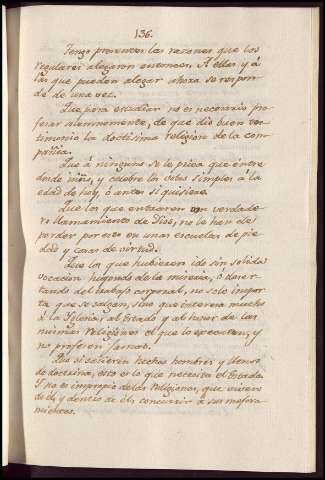 136.
Tengo presentes las razones que los
regulares alegaron entonces. A ellas y á
las que puedan alegar ahora se respon-
de de una vez.
Que para estudiar no es necesario pro-
fesar solemnemente, de que dio buen tes-
timonio la doctisima religion de la com-
pañia.
Que á ninguno se le priva que entre
desde niño, y celebre los votos simples á la
edad de hoy, ó antes si quisiere.
Que los que entraren con verdade-
ro llamamiento de Dios, no le han de
perder por esto en unas escuelas de pie-
dad y casas de virtud.
Que los que hubiesen ido sin solida
vocacion huyendo de la miseria, ó
tando del trabajo corporal, no solo impor-
ta que se salgan, sino que interesa mucho
á la Iglesia, al Estado y al honor de las
mismas religiones el que lo executen, y
no profesen jamas.
Que si salieren hechos hombres y llenos
de doctrina, esto es lo que necesita el Estado.
Y no es impropio de las religiones, que viven
de él, y dentro de él, concurrir á sus mejora-
mientos.